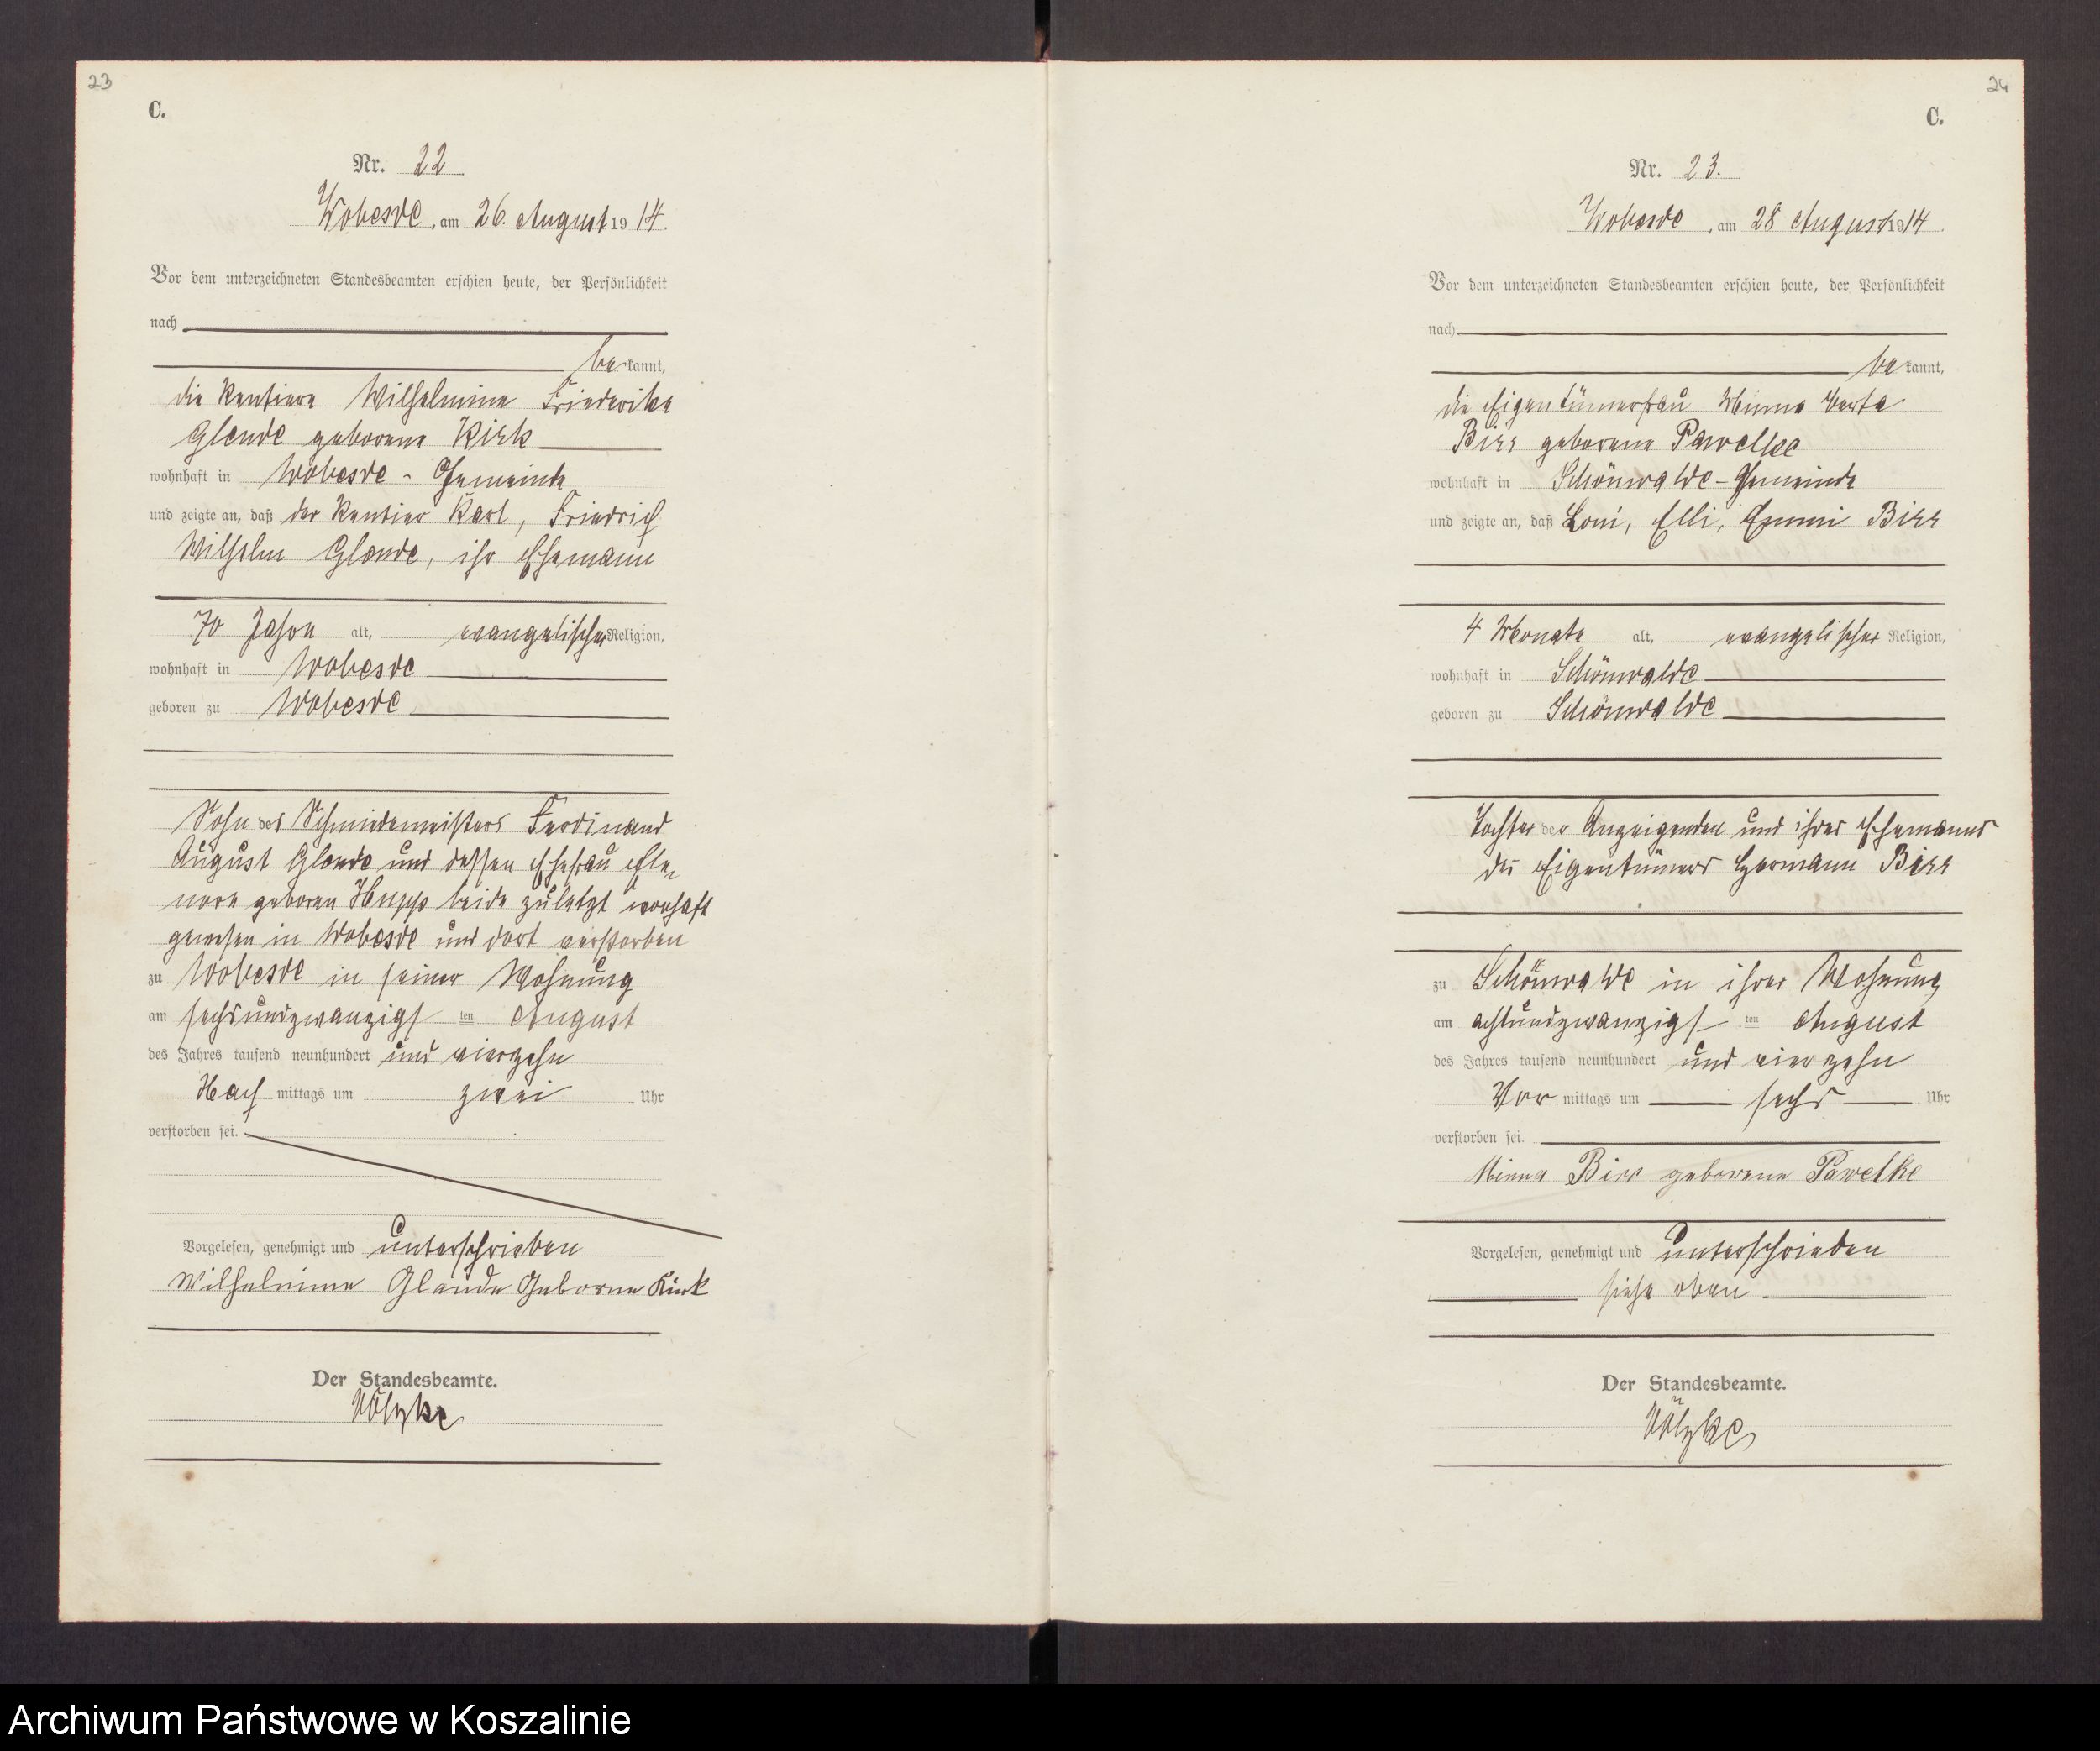 23
C.
Nr. 22
Wobesde, am 26. August 1914.
Vor dem unterzeichneten Standesbeamten erschien heute, der Persönlichkeit
nach
be kannt,
die Rentiere Wilhelmine Friederike
Glende geborene Kirk
wohnhaft in Wobesde - Gemeinde
und zeigte an, daß der Rentier Karl, Friedrich
Wilhelm Glande, ihr Ehemann
70 Jahre alt, evangelischer Religion,
wohnhaft in Wobesde
geboren zu Wobesde
Sohn des Schmiedemeisters Ferdinand
August Glande und dessen Ehefrau Ele-
nore geboren Hupp beide zuletzt wonhaft
gewesen in Wobesde und dort verstorben
zu Wobesde in seiner Wohnung
am sechsundzwanzigs ten August
des Jahres tausend neunhundert und vierzehn
Nach mittags um zwei Uhr
verstorben sei.
Vorgelesen, genehmigt und unterschrieben
Wilhelmine Glande Geborne Kirk
Der Standesbeamte.
Völzke
24
C.
Nr. 23.
Wobesde, am 28 August 1914.
Vor dem unterzeichneten Standesbeamten erschien heute, der Persönlichkeit
nach
be kannt,
die Eigentümerfrau Minna Berta
Birr geborene Pawelke
wohnhaft in Schönwalde - Gemeinde
und zeigte an, daß Loni, Elli, Emmi Birr
4 Monate alt, evangelischer Religion,
wohnhaft in Schönwalde
geboren zu Schönwalde
Tochter der Anzeigenden und ihres Ehemanns
des Eigentümers Hermann Birr
zu Schönwalde in ihrer Wohnung
am achtundzwanzigs ten August
des Jahres tausend neunhundert und vierzehn
Vor mittags um sechs Uhr
verstorben sei.
Minna Birr geborene Pawelke
Vorgelesen, genehmigt und unterschrieben
siehe oben
Der Standesbeamte.
Völzke
Archiwum Państwowe w Koszalinie